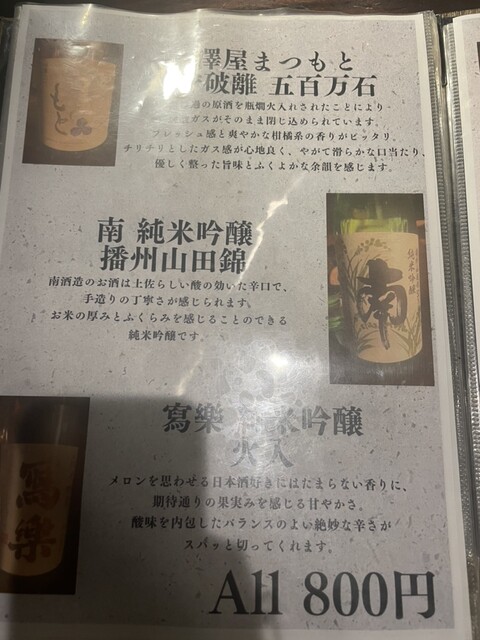 澤屋まつもと
破離 五百万石
の原酒を瓶燗火入れされたことにより
ガスがそのまま閉じ込められています。
フレッシュ感と爽やかな柑橘系の香りがピッタリ。
チリチリとしたガス感が心地良く、やがて滑らかな口当たり、
優しく整った旨味とふくよかな余韻を感じます。
もと
南 純米吟醸
播州山田錦
南酒造のお酒は土佐らしい酸の効いた辛口で、
手造りの丁寧さが感じられます。
お米の厚みとふくらみを感じることのできる
純米吟醸です。
純米吟醸
南
寫樂 純米吟醸
火入
メロンを思わせる日本酒好きにはたまらない香りに、
期待通りの果実みを感じる甘やかさ。
酸味を内包したバランスのよい絶妙な辛さが
スパッと切ってくれます。
寫樂
All 800円